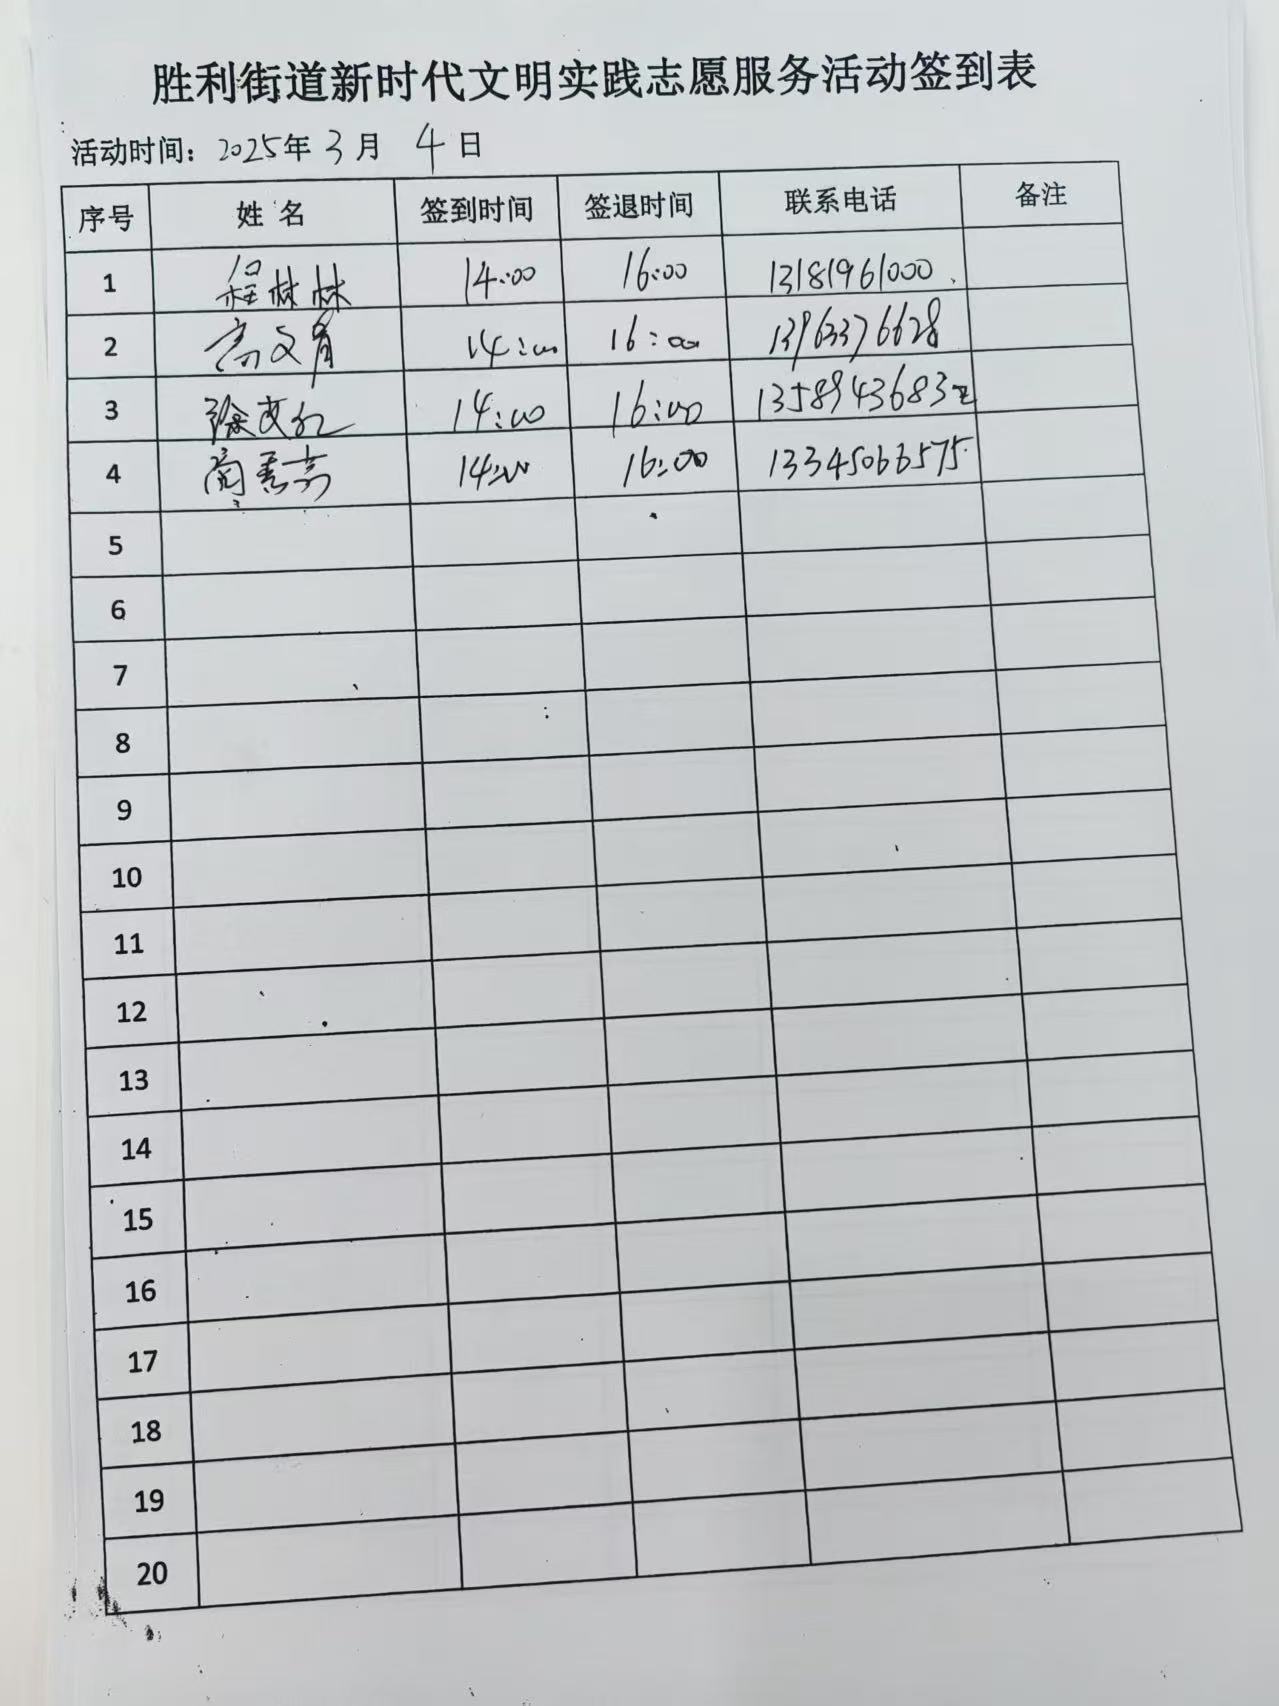 胜利街道新时代文明实践志愿服务活动签到表
活动时间：2025年 3月 4日
序号 姓名 签到时间 签退时间 联系电话 备注
1 程林林 14:00 16:00 13181961000
2 高文育 14:00 16:00 13963376628
3 徐文红 14:00 16:00 1358943683
4 14:00 16:00 13345066575
5
6
7
8
9
10
11
12
13
14
15
16
17
18
19
20